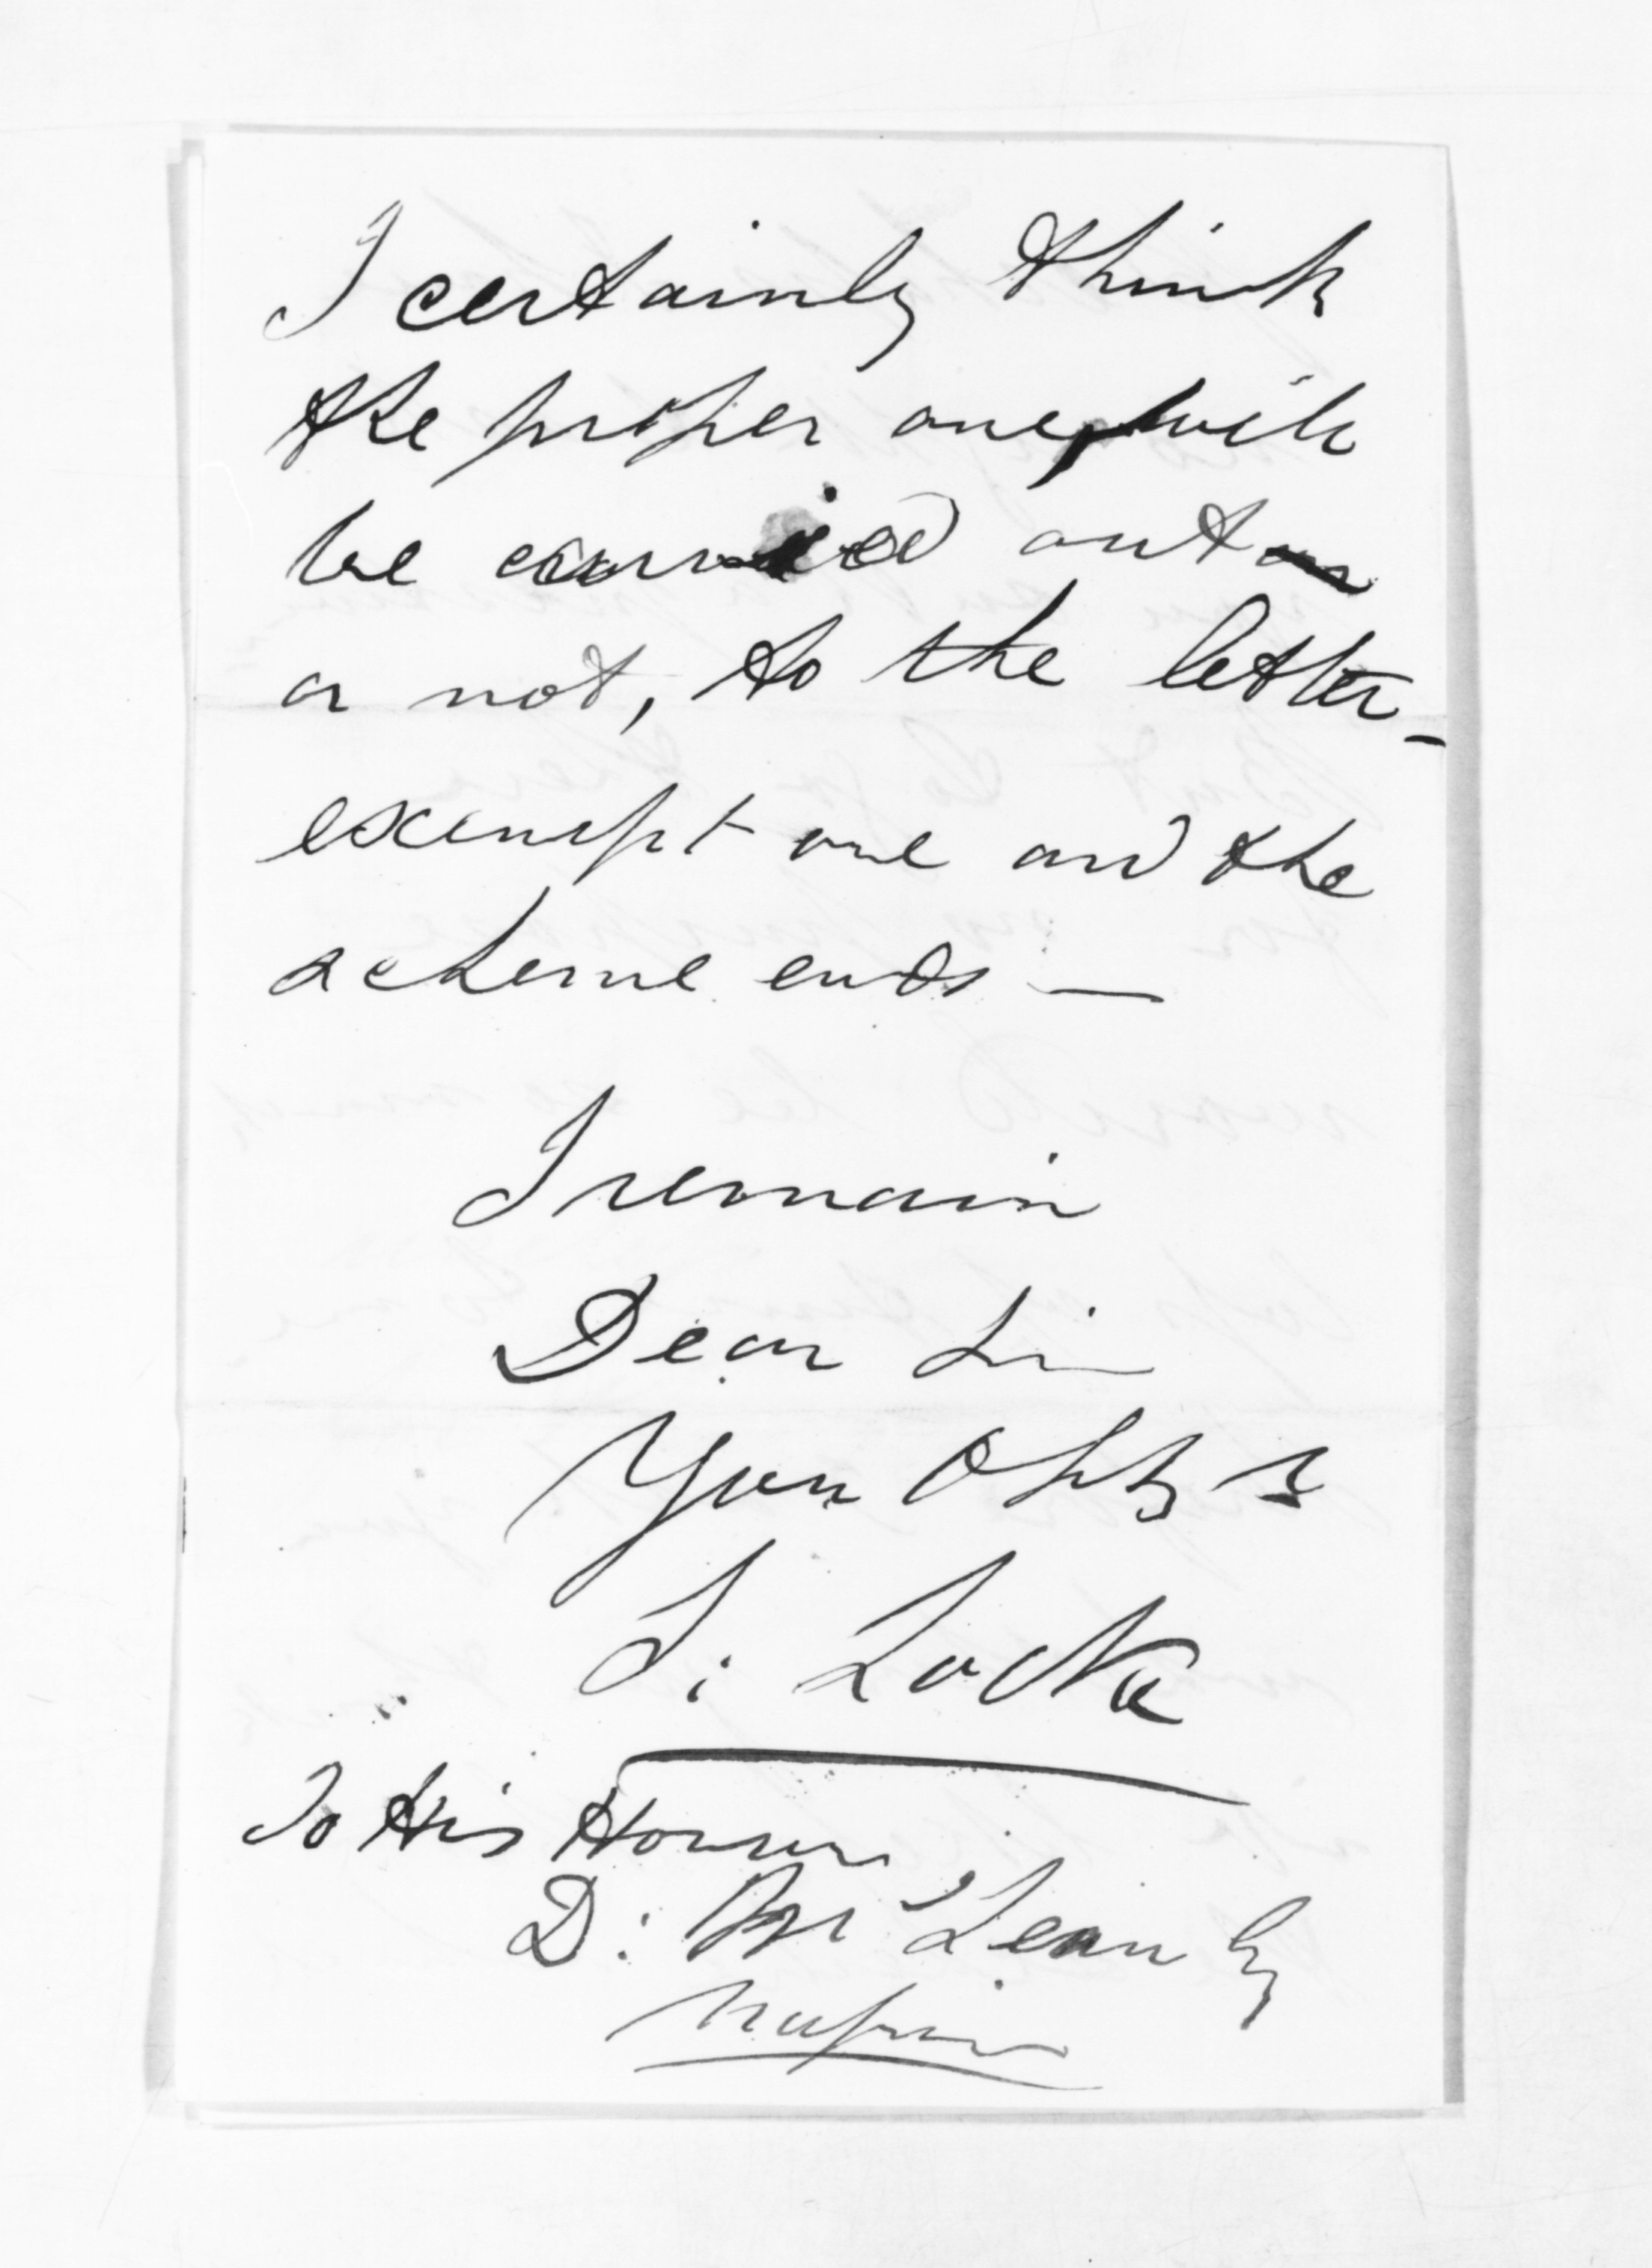 I certainly think
the proper one, will
be carried out
or not, to the letter -
exempt one and the
scheme ends —
I remain
Dear Sir
Your
S: Locke
To His Honour
D: McLean Esq
Napier